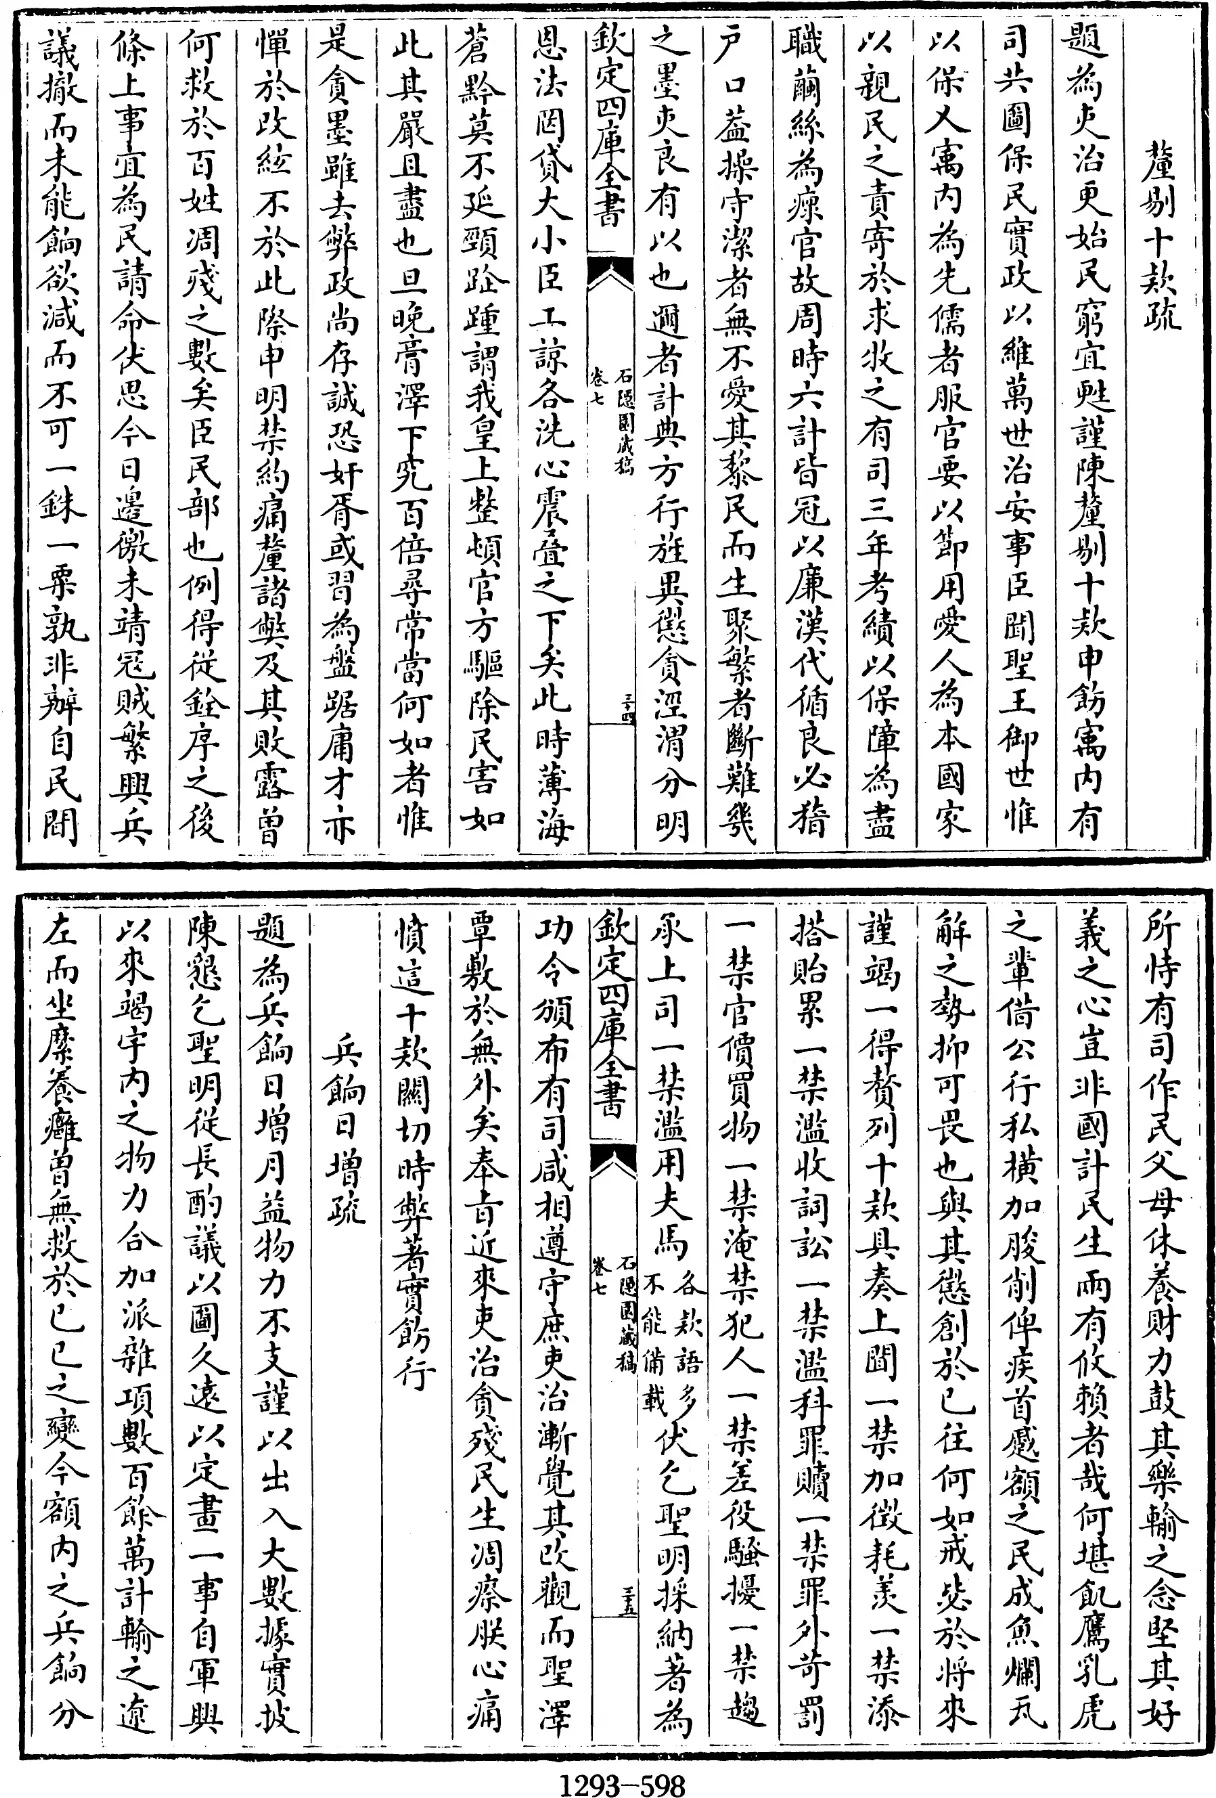 釐剔十款疏
題為吏治更始民窮宜甦謹陳釐剔十款申飭寓内有
司共圖保民實政以維萬世治安事臣聞聖王御世惟
以保乂寓内為先儒者服官要以節用愛人為本國家
以親民之責寄於求牧之有司三年考績以保障為盡
職繭絲為瘝官故周時六計皆冠以廉漢代循良必稽
户口葢操守潔者無不愛其黎民而生聚繁者斷難幾
之墨吏良有以也邇者計典方行旌異懲貪涇渭分明
欽定四庫全書
石隱園藏稿
卷七
三十四
恩法罔貸大小臣工諒各洗心震疊之下矣此時薄海
蒼黔莫不延頸跂踵謂我皇上整頓官方驅除民害如
此其嚴且盡也旦晚膏澤下究百倍尋常當何如者惟
是貪墨雖去弊政尚存誠恐奸胥或習為盤踞庸才亦
憚於改絃不於此際申明禁約痛釐諸弊及其敗露曾
何救於百姓凋殘之數矣臣民部也例得從銓序之後
條上事宜為民請命伏思今日邊儌未靖冦賊繁興兵
議撤而未能餉欲減而不可一銖一粟孰非辦自民間
所恃有司作民父母休養財力鼓其樂輸之念堅其好
義之心豈非國計民生兩有攸賴者哉何堪飢鷹乳虎
之輩借公行私横加朘削俾疾首蹙額之民成魚爛瓦
解之勢抑可畏也與其懲創於已往何如戒毖於將來
謹竭一得贅列十款具奏上聞一禁加徴耗羡一禁添
搭貽累一禁濫收詞訟一禁濫科罪贖一禁罪外苛罰
一禁官價買物一禁淹禁犯人一禁差役騷擾一禁趨
承上司一禁濫用夫馬各款語多不能備載伏乞聖明採納著為
欽定四庫全書
石隱園藏稿
卷七
三十五
功令頒布有司咸相遵守庶吏治漸覺其改觀而聖澤
覃敷於無外矣奉㫖近來吏治貪殘民生凋瘵朕心痛
憤這十款關切時弊著實飭行
兵餉日增疏
題為兵餉日增月益物力不支謹以出入大數據實披
陳懇乞聖明從長酌議以圖久遠以定畫一事自軍興
以來竭宇内之物力合加派雜項數百餘萬計輸之遼
左而坐縻養癰曾無救於已已之變今額内之兵餉分
1293-598